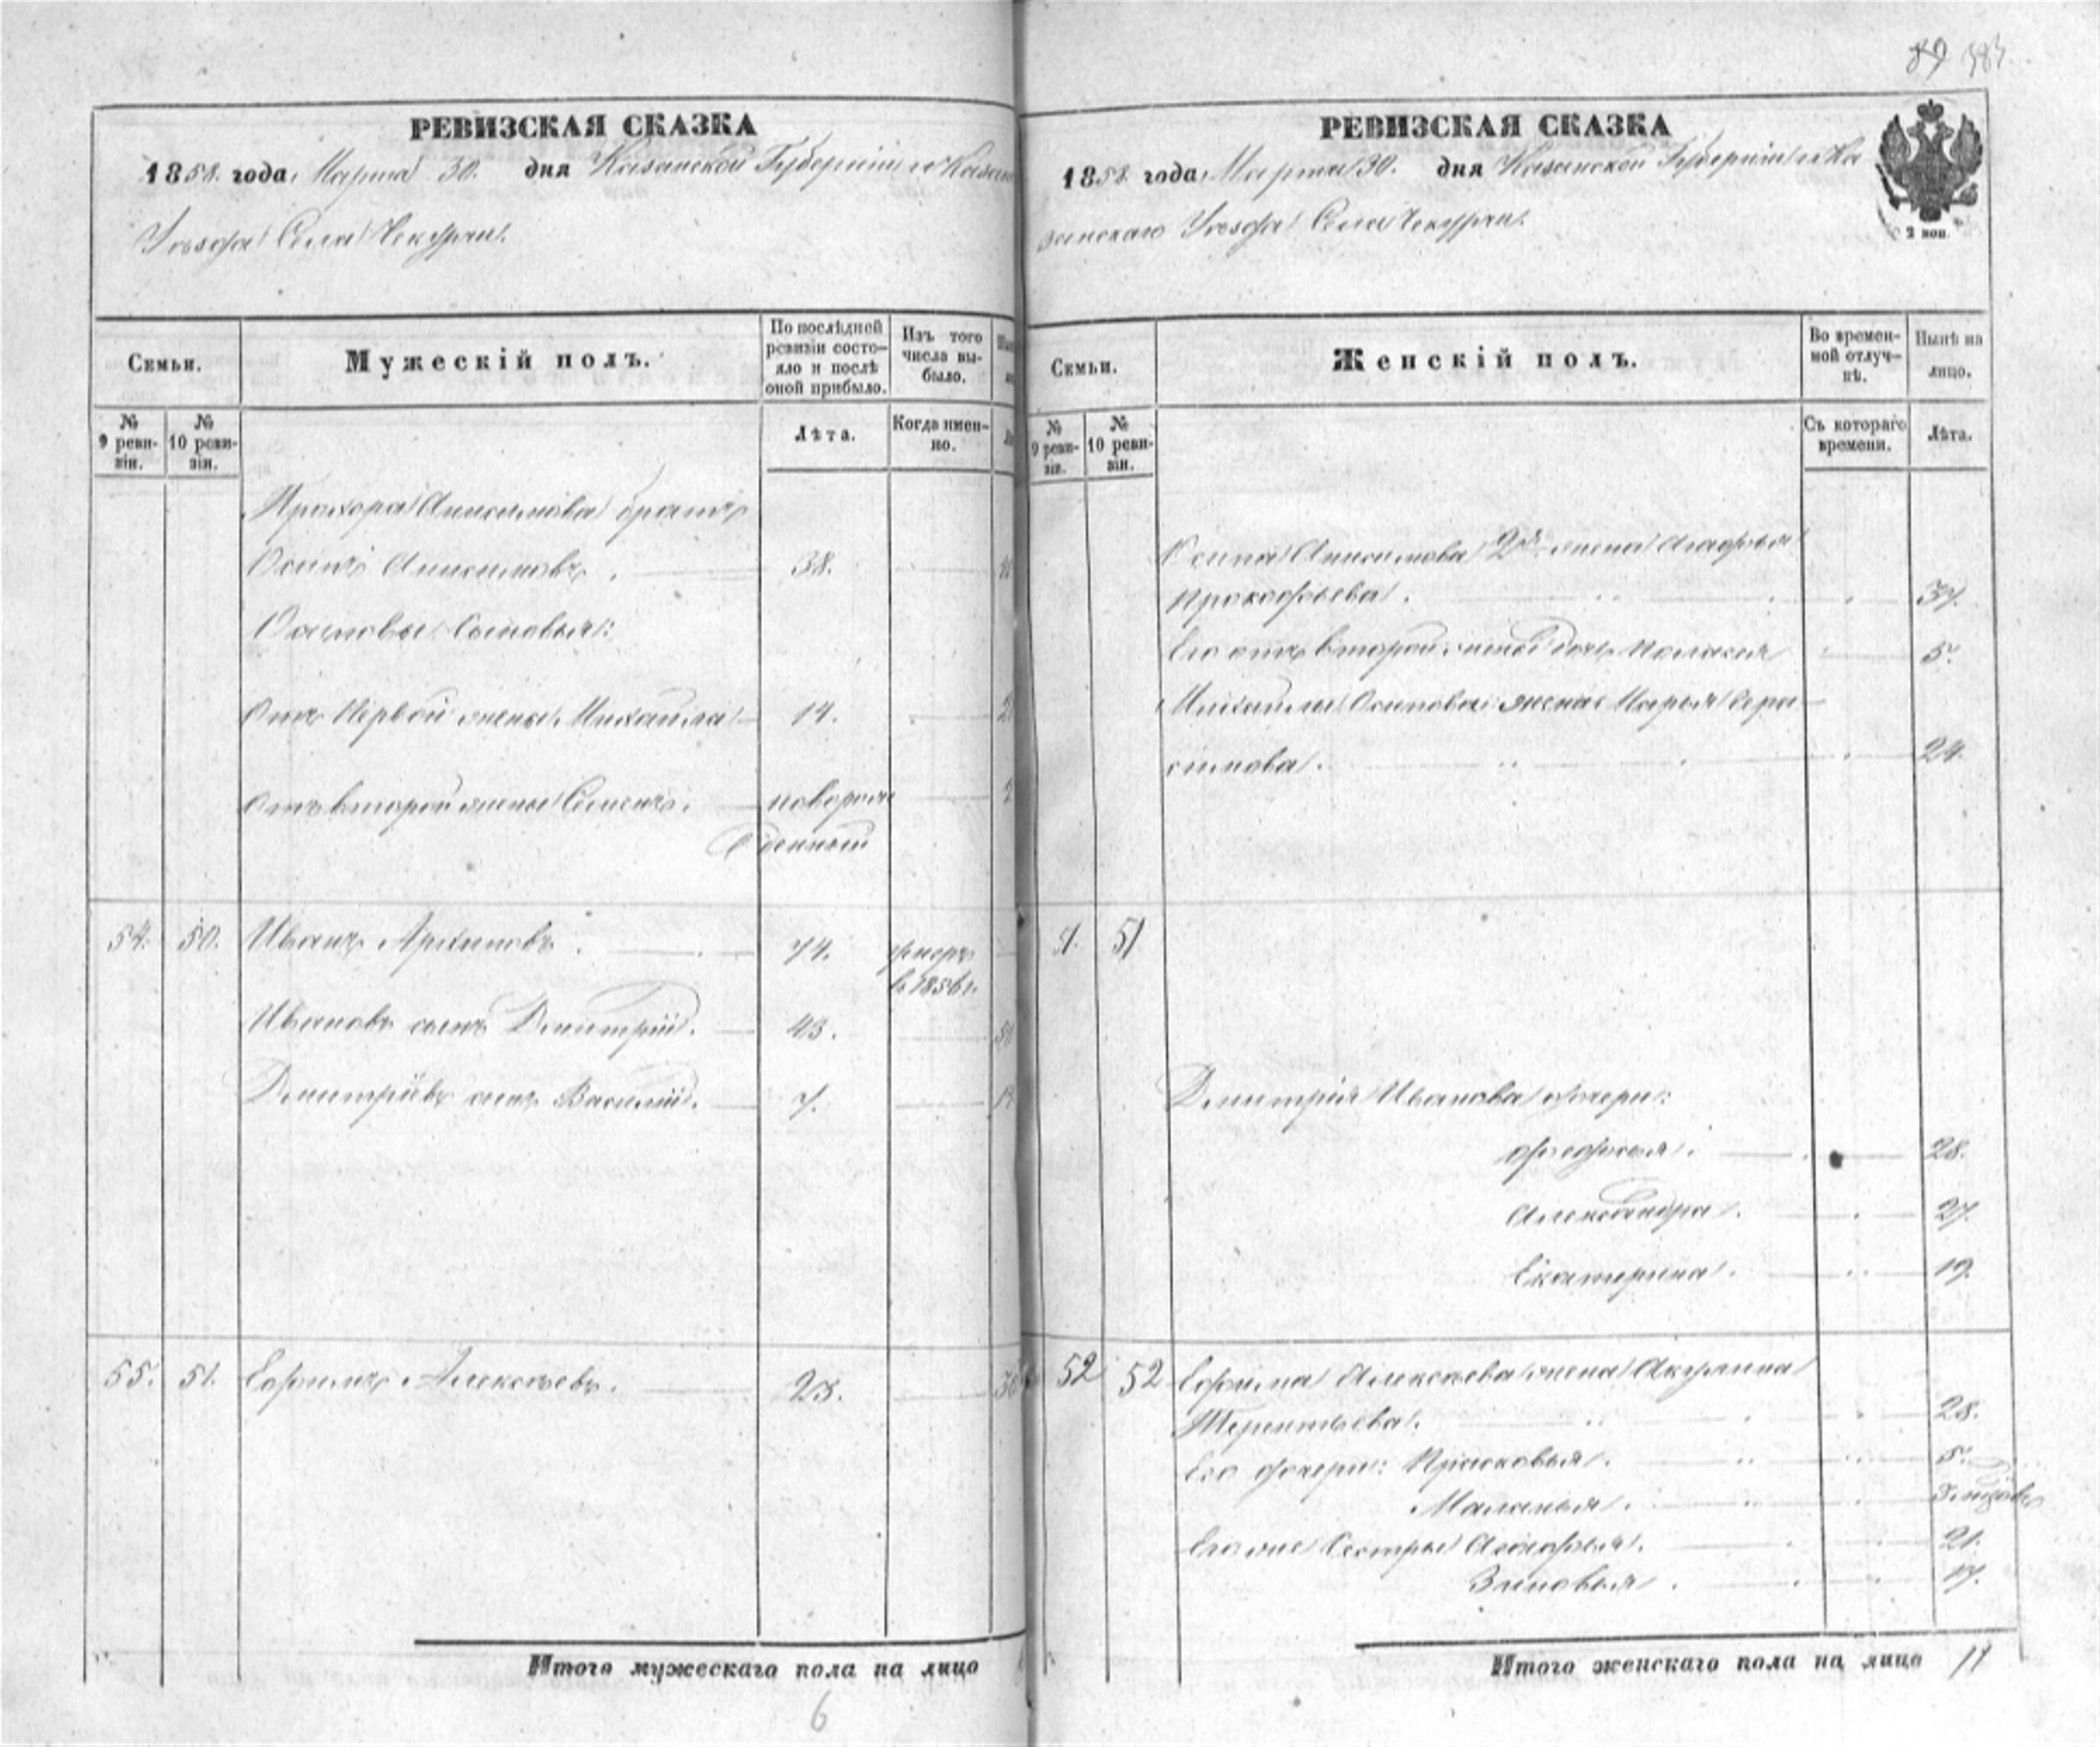 89
РЕВИЗСКАЯ СКАЗКА
1858. года, Марта 30. дня Казанской Губерніи и Казан
Уѣзда Села Чекурчи.
Семьи.
Мужескій полъ.
По послѣдней ревизіи состояло и послѣ оной прибыло.
Изъ того числа выбыло.
№ 9 ревизіи.
№ 10 ревизіи.
Лѣта.
Когда именно.
Прохора Анисимова братъ
Осипъ Анисимовъ. 38.
Осиповы Сыновья:
Отъ Первой жены Михайла 14.
Отъ второй жены Семенъ. новорож
денный
54. 50. Иванъ Архиповъ. 74. умеръ
в 1856 г.
Ивановъ сынъ Дмитрій. 43.
Дмитріевъ сынъ Василій. 7.
55. 51. Ефимъ Алексѣевъ. 23.
Итого мужескаго пола на лицо
6
РЕВИЗСКАЯ СКАЗКА
1858 года, Марта 30. дня Казанской Губерніи и Ка
занскаго Уѣзда Села Чекурчи.
2 коп.
Семьи.
Женскій полъ.
Во временной отлучкѣ.
Нынѣ на лицо.
№ 9 ревизіи.
№ 10 ревизіи.
Съ котораго времени.
Лѣта.
Осипа Анисимова 2я жена Агафья
Прокофьева. 37.
Его отъ второй жены дочь Пелагея 5.
Михайлы Осипова жена Марья Гера
симова. 24.
51
Дмитрія Иванова дочери:
Федосья. 28.
Александра. 27.
Екатерина. 19.
52 52 Ефима Алексѣева жена Акулина
Терентьева. 28.
Его дочери: Прасковья. 5.
Маланья.
Его же Сестры Агафья. 21.
Зиновья. 17.
Итого женскаго пола на лицо 11